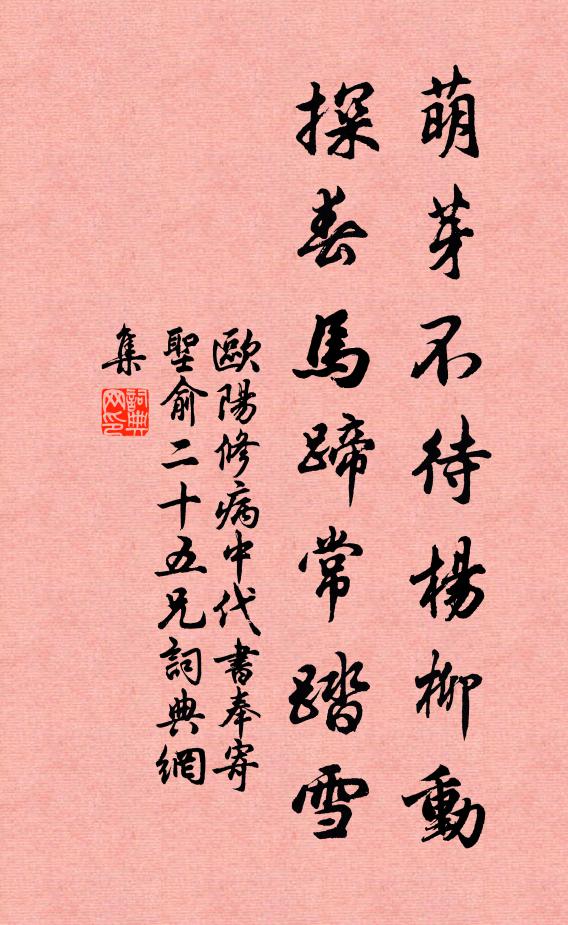 萌芽不待楊柳動
探春馬蹄常踏雪
歐陽修病中代書奉寄
聖俞二十五兄詞典網
集
詞典
网印